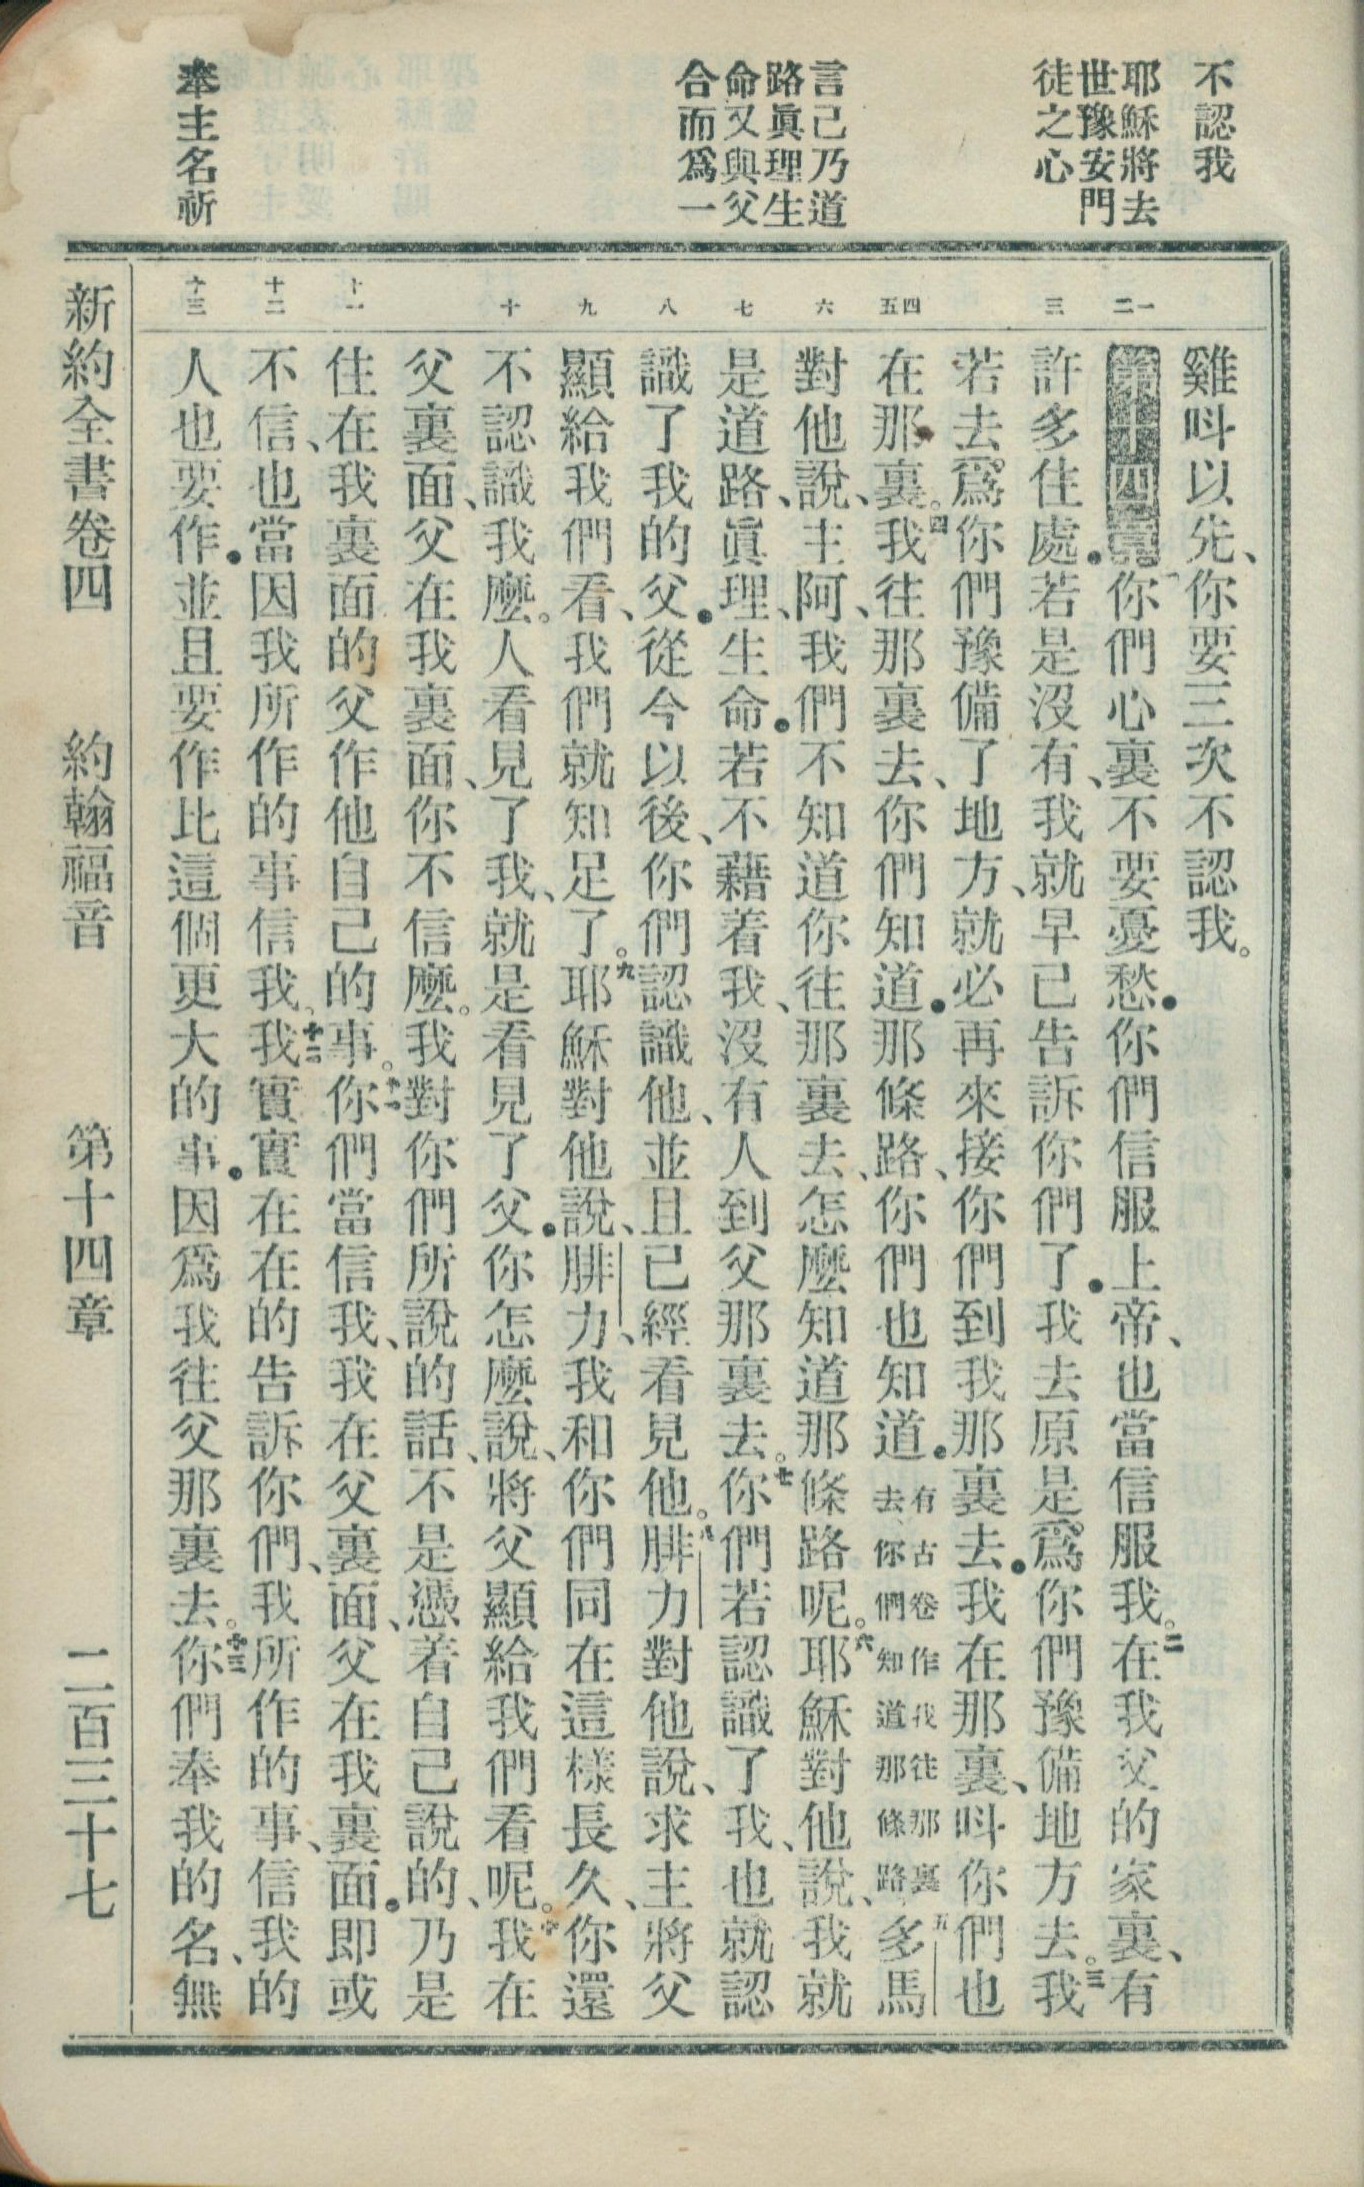 不認我
耶穌將去
世豫安門
徒之心
言己乃道
路眞理生
命又與父
合而爲一
奉主名祈
一
二
三
四
五
六
七
八
九
十
十一
十二
十三
雞呌以先、你要三次不認我。
第十四章 一你們心裏不要憂愁.你們信服上帝、也當信服我。二在我父的家裏、有
許多住處.若是沒有、我就早已告訴你們了.我去原是爲你們豫備地方去。三我
若去爲你們豫備了地方、就必再來接你們到我那裏去.我在那裏、呌你們也
在那裏。四我往那裏去、你們知道.那條路、你們也知道.有古卷作我往那裏去、你們知道那條路五多馬
對他說、主阿、我們不知道你往那裏去、怎麼知道那條路呢。六耶穌對他說、我就
是道路、眞理、生命.若不藉着我、沒有人到父那裏去。七你們若認識了我、也就認
識了我的父.從今以後、你們認識他、並且已經看見他。八腓力對他說、求主將父
顯給我們看、我們就知足了。九耶穌對他說、腓力、我和你們同在這樣長久、你還
不認識我麼。人看見了我、就是看見了父.你怎麼說、將父顯給我們看呢。十我在
父裏面、父在我裏面、你不信麼。我對你們所說的話、不是憑着自己說的、乃是
住在我裏面的父作他自己的事。十一你們當信我、我在父裏面、父在我裏面.即或
不信、也當因我所作的事信我。十二我實實在在的告訴你們、我所作的事、信我的
人也要作.並且要作比這個更大的事.因爲我往父那裏去。十三你們奉我的名、無
新約全書卷四 約翰福音 第十四章 二百三十七